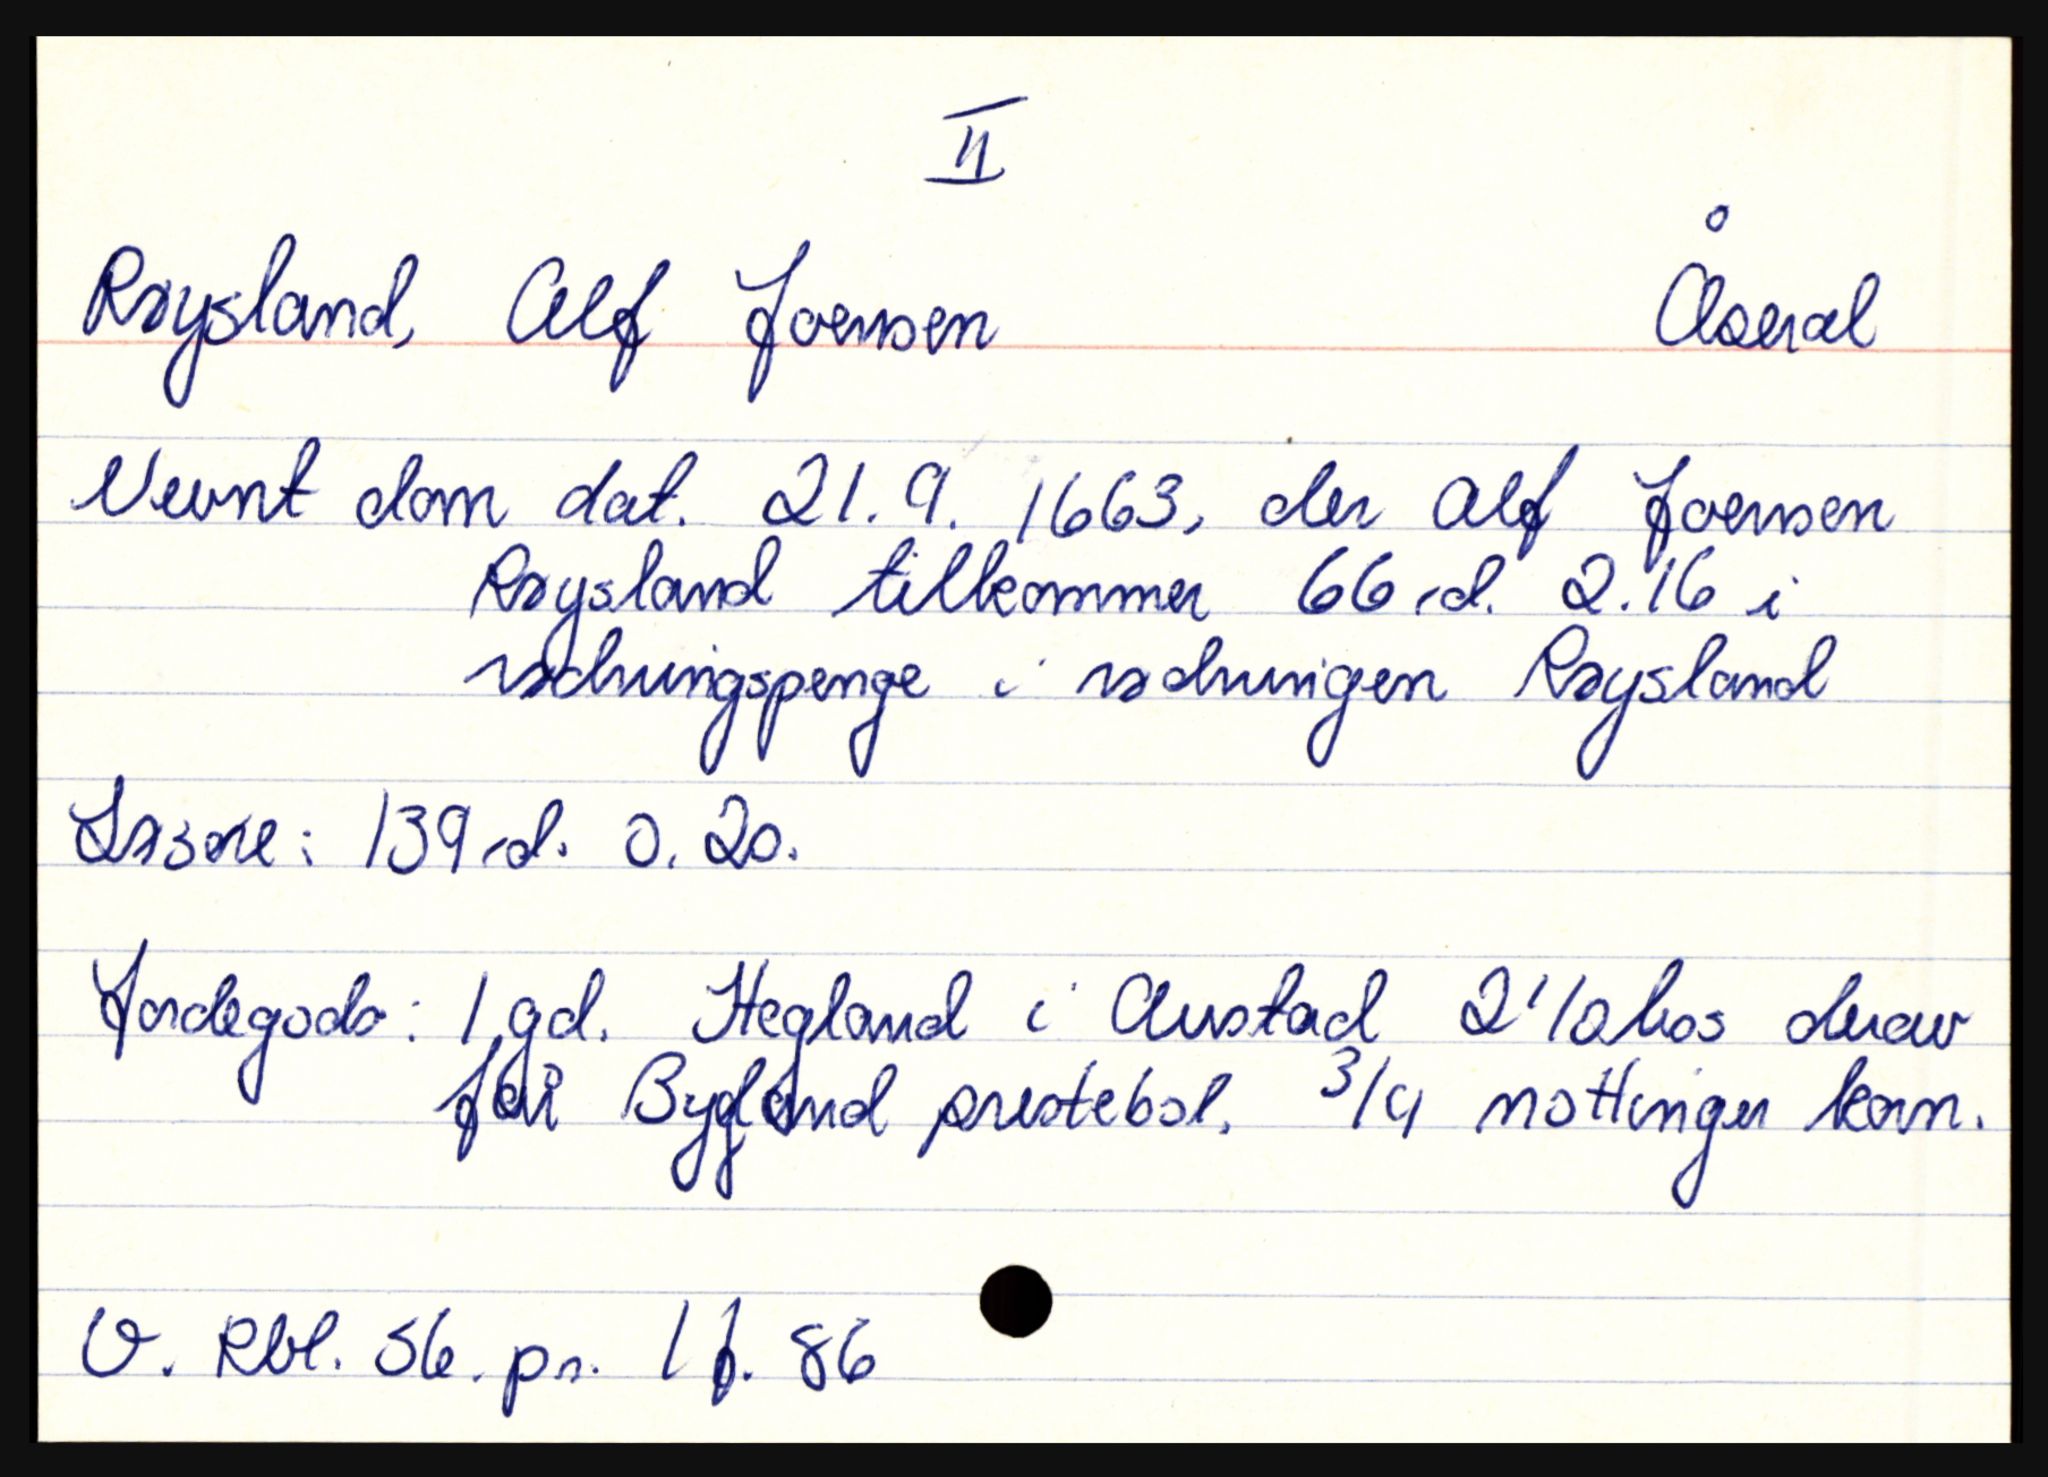 II
Røysland, Alf Joensen Åseral
Nevnt dom dat. 21.9. 1663, der Alf Joensen
Røysland tilkommer 66 rd. 2.16 i
rødningspenge i rødningen Røysland
Løsøre: 139 rd. 0.20.
Jordegods: 1 gd. Hegland i Austad 2 1/2 hos derav
får Bygland prestebol. 3/4 nøttinger korn.
V. Rbl. S6. pr. 1 f. 86